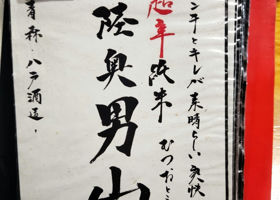 ンチとキレが素晴らしい爽快
超辛純米
むつおとこ
陸奥男山
青森・八戸酒造・